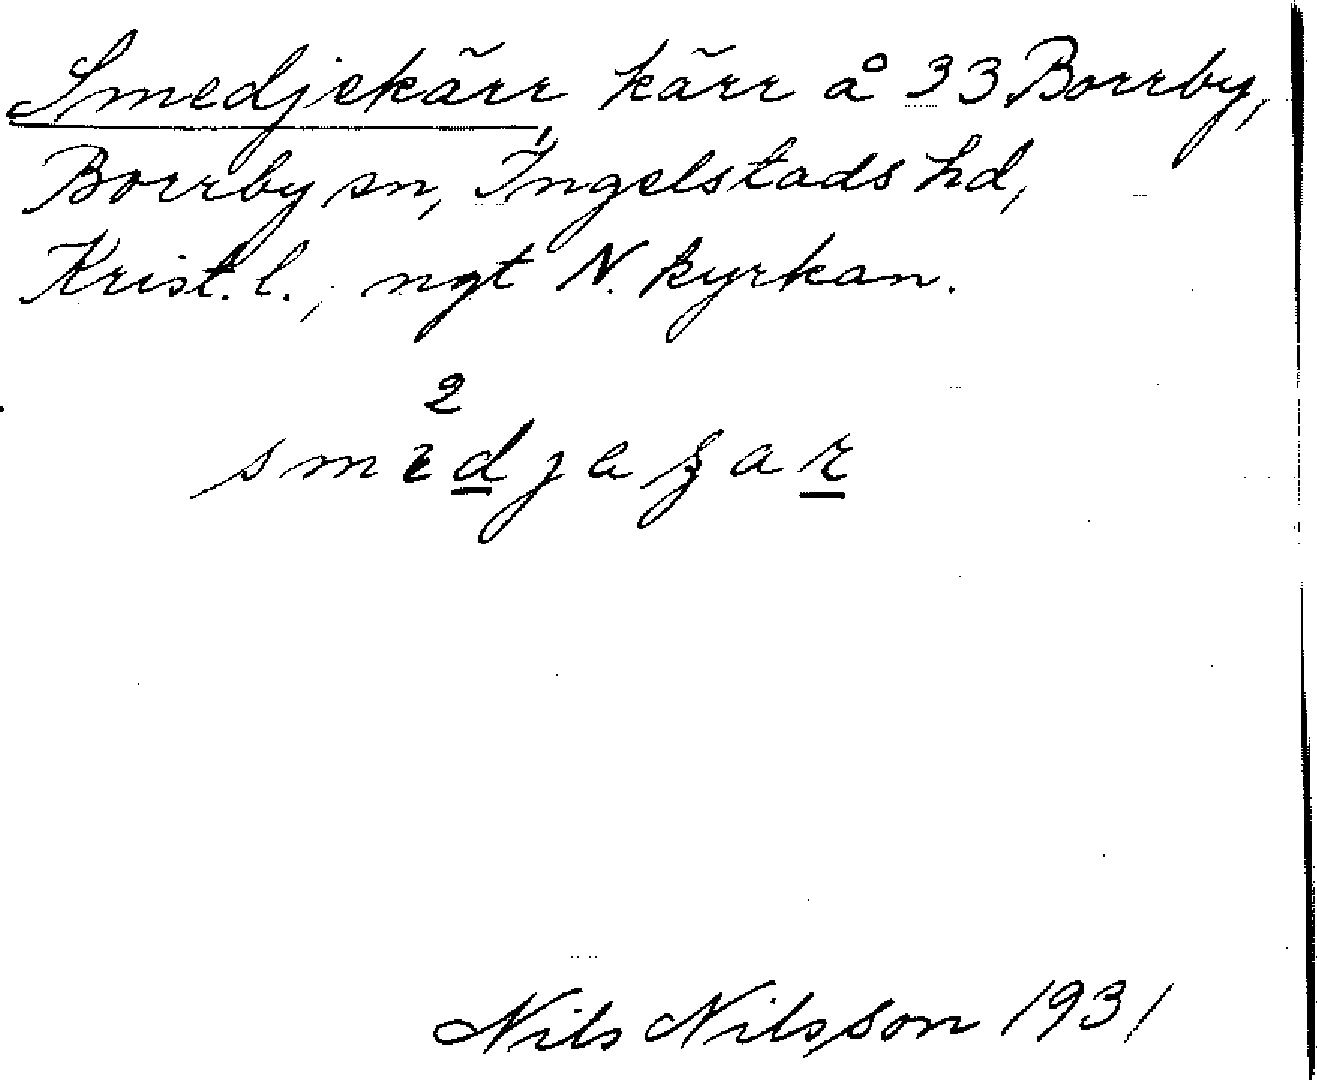 Smedjekärr kärr å 33 Borrby,
Borrby sn, Ingelstads hd,
Krist. l., ngt N. kyrkan.
2
Nils Nilsson 1931